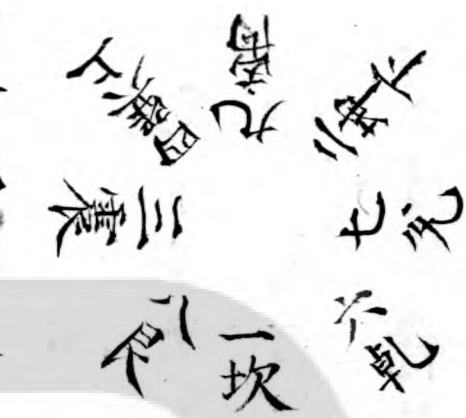 四巽
九离
二坤
三震
七兊
八艮
一坎
六乾